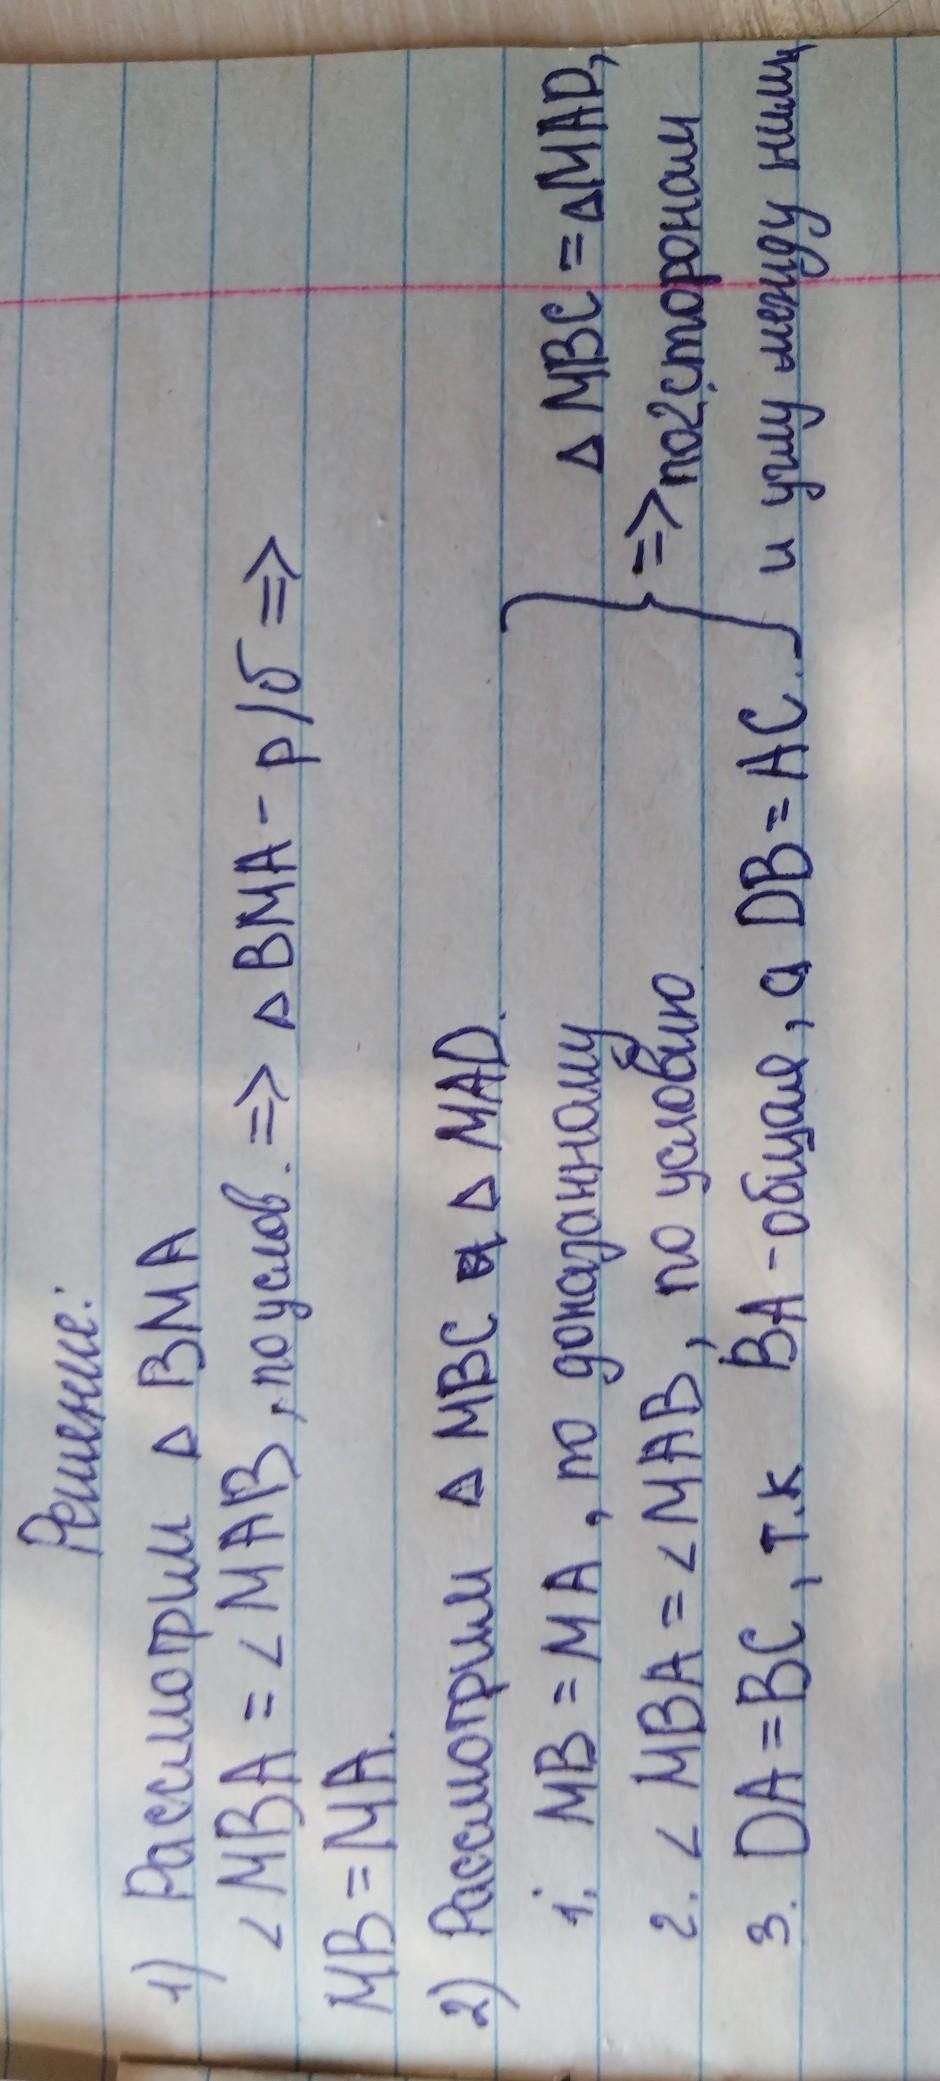 Решение:
1) Рассмотрим △ BMA
∠ MBA = ∠ MAB, по услов. => △ BMA - р/б =>
MB = MA.
2) Рассмотрим △ MBC и △ MAD.
1. MB = MA, по доказанному
2. ∠ MBA = ∠ MAB, по условию
3. DA = BC, т.к BA - общая, а DB = AC.
△ MBC = △ MAD,
=> по 2 сторонам
и углу между ними